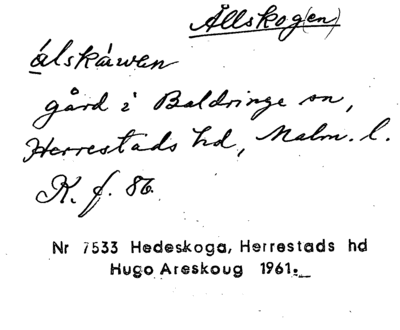 Ällskog(en)
álskáwen
gård i Baldringe sn,
Herrestads hd, Malm. l.
K. f. 86.
Nr 7533 Hedeskoga, Herrestads hd
Hugo Areskoug 1961.